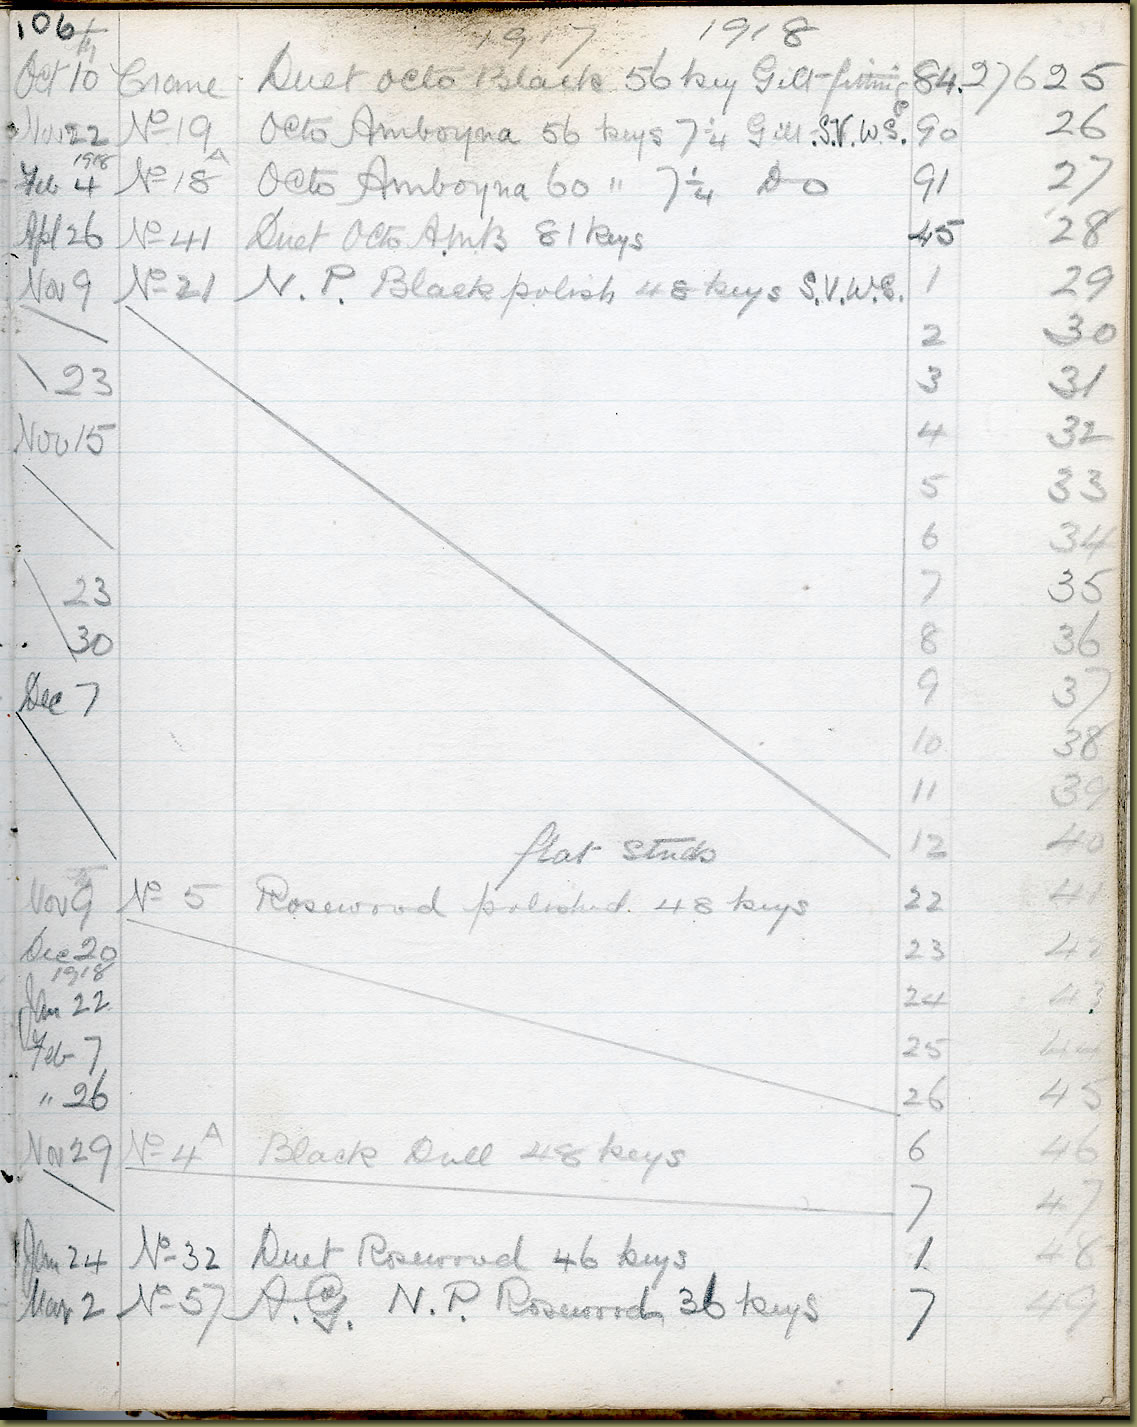 106
1917 1918
Oct 10 Crane Duet Octo Black 56 key Gilt fitting 84. 27625
Nov 22 No 19 Octo Amboyna 56 keys 7 1/4 Gilt S.V.W.S. 90 26
1918
Feb 4 No 18 A Octo Amboyna 60 " 7 1/4 Do 91 27
Apl 26 No 41 Duet Octo Amb 81 keys 45 28
Nov 9 No 21 N. P. Black polish 48 keys S.V.W.S. 1 29
2 30
23 3 31
Nov 15 4 32
5 33
6 34
23 7 35
30 8 36
Dec 7 9 37
10 38
11 39
flat studs 12 40
Nov 9 No 5 Rosewood polished. 48 keys 22 41
Dec 20 23 42
1918
Jan 22 24 43
Feb 7 25
" 26 26 45
Nov 29 No 4 A Black Dull 48 keys 6 46
7 47
Jan 24 No 32 Duet Rosewood 46 keys 1 48
Mar 2 No 57 A.G. N.P. Rosewood 36 keys 7 49